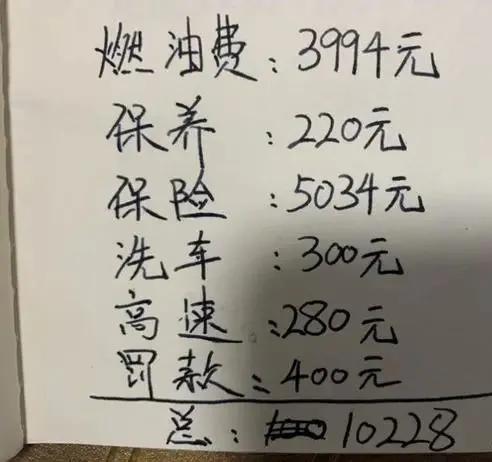 燃油费：3994元
保养：220元
保险：5034元
洗车：300元
高速：280元
罚款：400元
总：10228